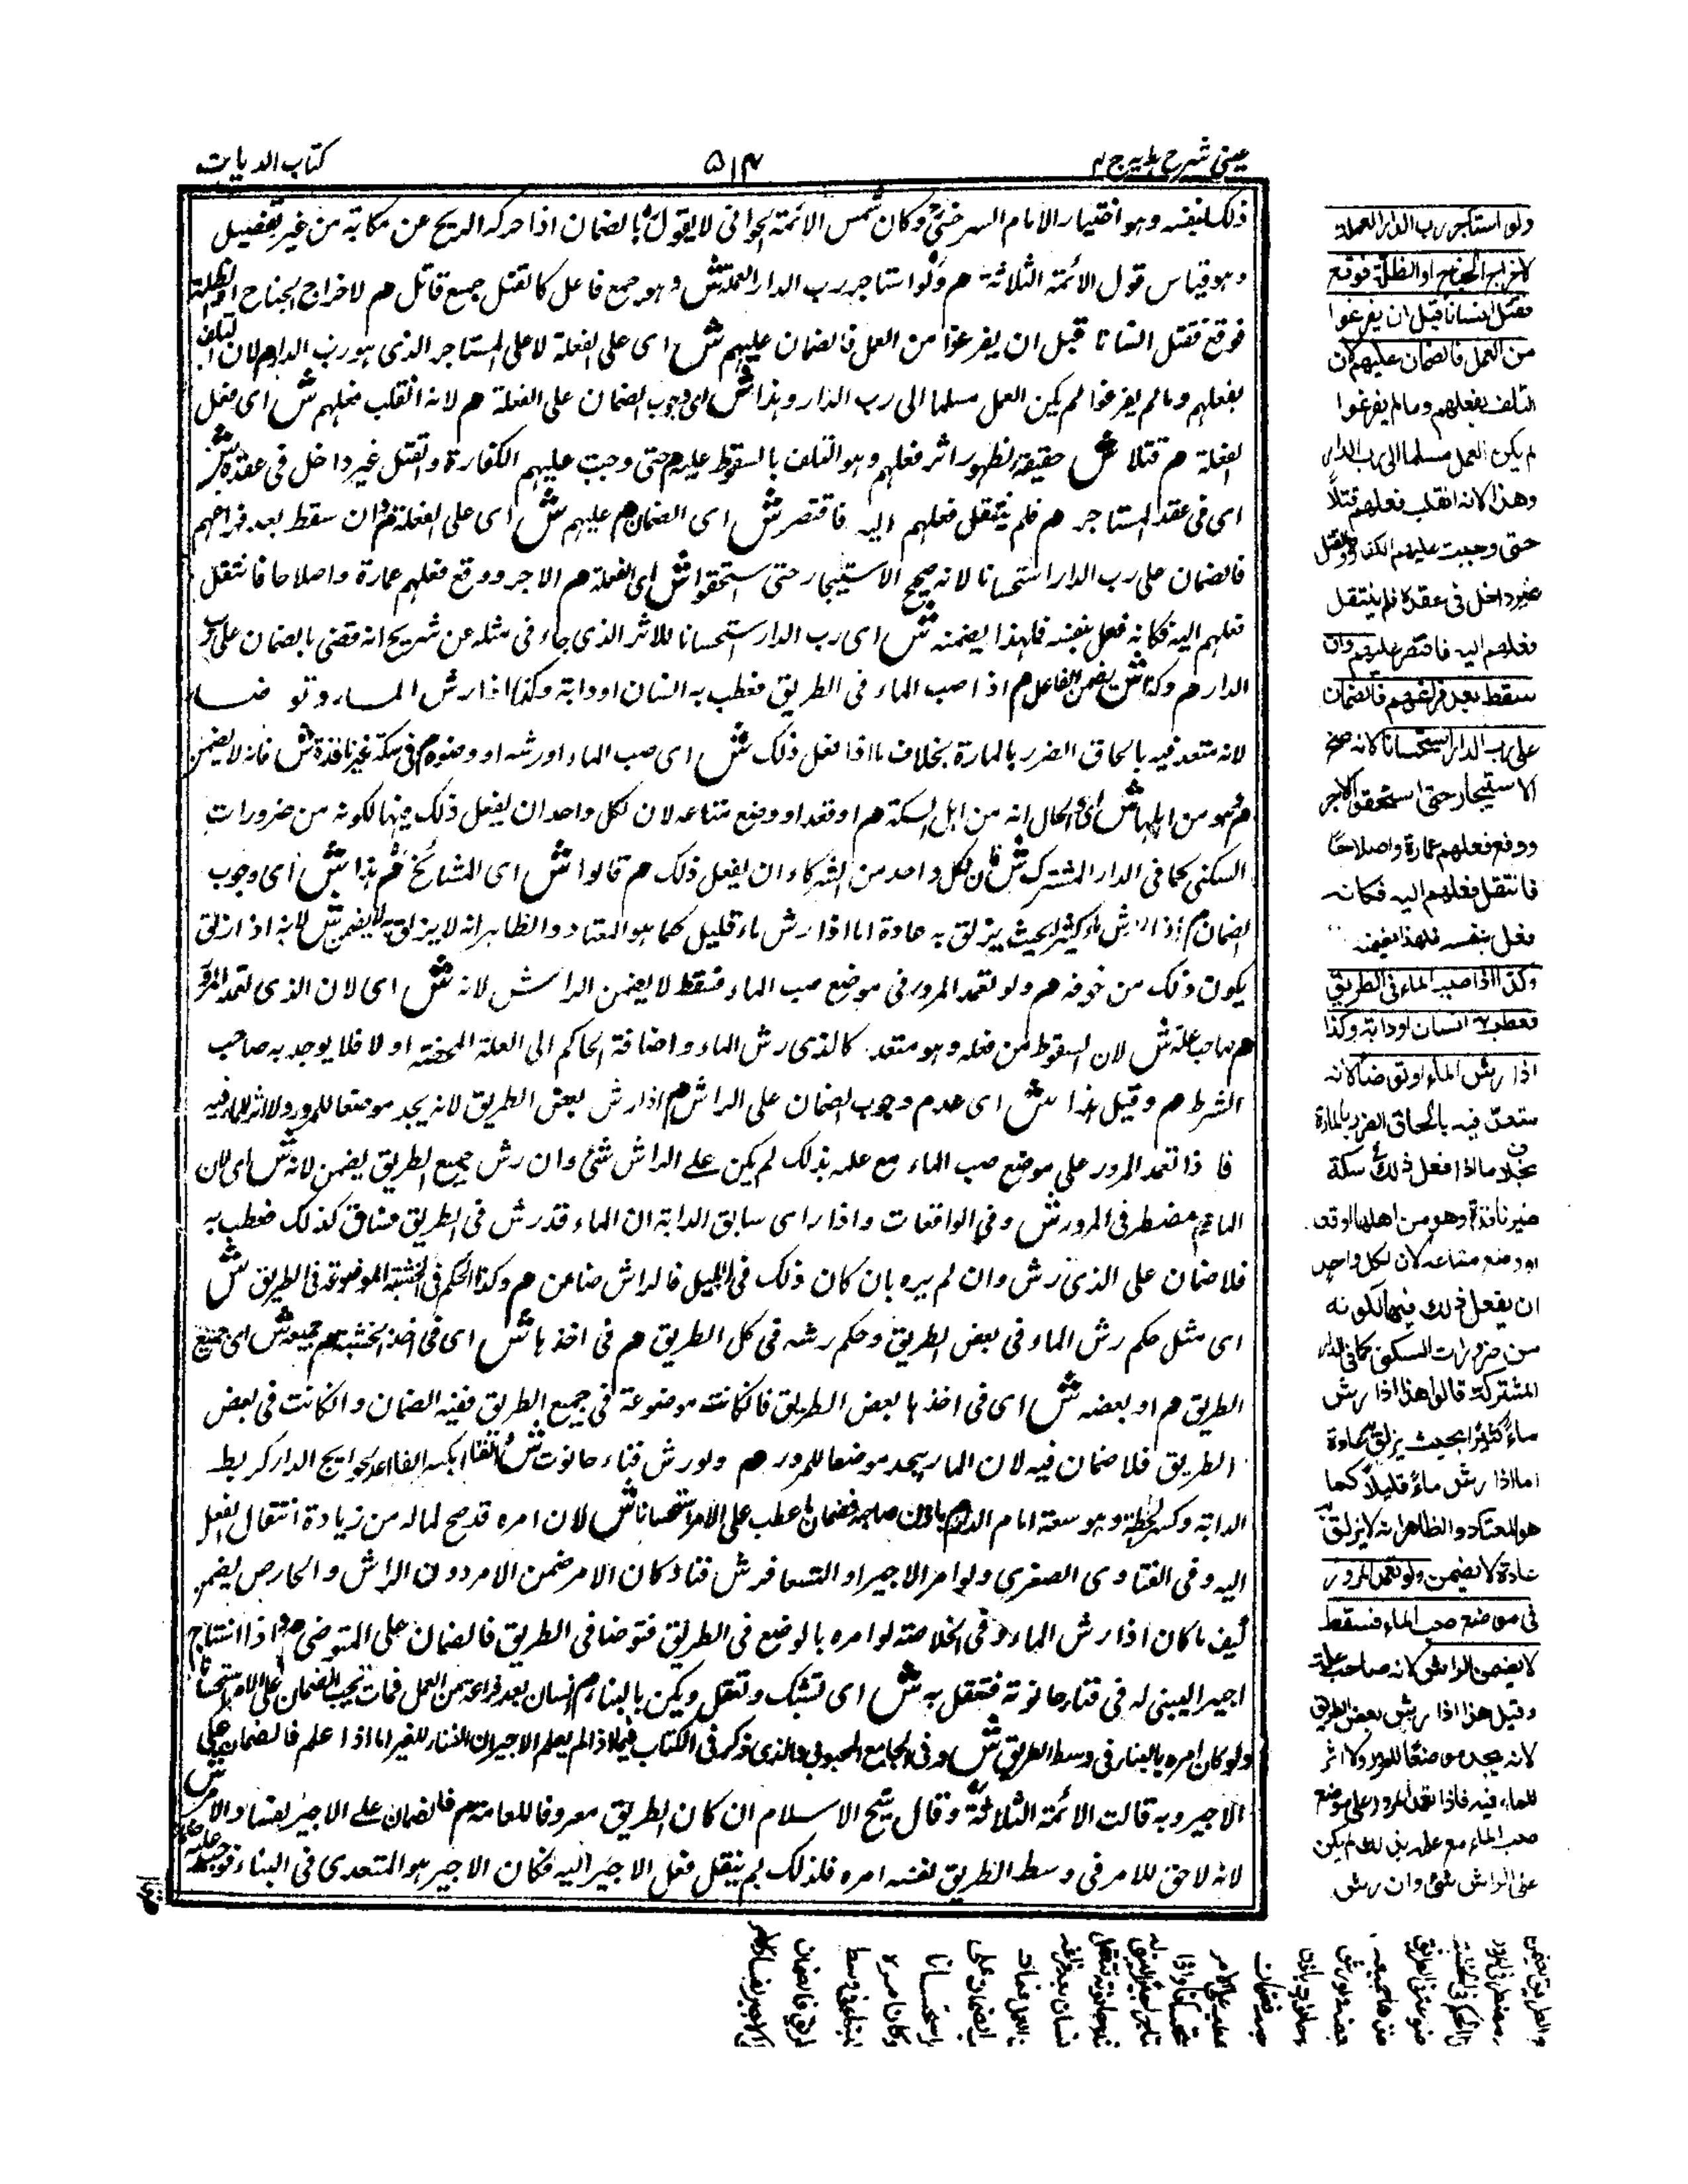 عینی شرح ہدایہ ج ۴
۵۱۴
کتاب الدیات
ذلك لنفسه وهو اختيار الامام السرخسي وكان شمس الائمة الحلواني لا يقول بالضمان اذا حركه الريح عن مكانه من غير تفصيل
وهو قياس قول الائمة الثلاثة هم ولو استاجر رب الدار العملة ش وهو جمع فاعل كالقتل جمع قاتل هم لاخراج الجناح او الظلة
فوقع فقتل انسانا قبل ان يفرغوا من العمل فالضمان عليهم ش اى على الفعلة لا على المستاجر الذى هو رب الدار هم لان التلف
بفعلهم وما لم يفرغوا لم يكن العمل مسلما الى رب الدار وهذا ش اى وجوب الضمان على الفعلة هم لانه انقلب فعلهم ش اى فعل
الفعلة هم قتلا ش حقيقة لظهور اثر فعلهم وهو التلف بالسقوط عليه هم حتى وجبت عليهم الكفارة والقتل غير داخل فى عقده ش
اى فى عقد المستاجر هم فلم ينتقل فعلهم اليه فاقتصر ش اى الضمان هم عليهم ش اى على الفعلة هم وان سقط بعد فراغهم
فالضمان على رب الدار استحسانا لانه صح الاستيجار حتى استحقوا ش اى الفعلة هم الاجر ووقع فعلهم عمارة واصلاحا فانتقل
فعلهم اليه فكانه فعل بنفسه فلهذا يضمنه ش اى رب الدار استحسانا للاثر الذى جاء فى مثله عن شريح انه قضى بالضمان على رب
الدار هم وكذا ش يضمن الفاعل هم اذا صب الماء فى الطريق فعطب به انسان او دابة وكذا اذا رش الماء او توضا
لانه متعد فيه بالحاق الضرر بالمارة بخلاف ما اذا فعل ذلك ش اى صب الماء او رشه او وضوء هم فى سكة غير نافذة ش فانه لا يضمن
هم وهو من اهلها ش اى والحال انه من اهل السكة هم او قعد او وضع متاعه لان لكل واحد ان يفعل ذلك فيها لكونه من ضرورات
السكنى كما فى الدار المشترك ش فان لكل واحد من الشركاء ان يفعل ذلك هم قالوا ش اى المشائخ هم هذا ش اى وجوب
الضمان هم اذا رش ماء كثيرا بحيث يزلق به عادة اما اذا رش ماء قليل كما هو المعتاد والظاهر انه لا يزلق به لا يضمن ش لانه اذا زلق
يكون ذلك من خوفه هم ولو تعمد المرور فى موضع صب الماء فسقط لا يضمن الراش لانه ش اى لان الذى تعمد المرور
هم صاحب علة ش لان السقوط من فعله وهو متعد كالذى رش الماء واضافة الحاكم الى العلة المحضة اولا فلا يوجد به صاحب
الشرط هم وقيل هذا ش اى عدم وجوب الضمان على الراش هم اذا رش بعض الطريق لانه يجد موضعا للمرور ولا اثر للماء فيه
فاذا تعمد المرور على موضع صب الماء مع علمه بذلك لم يكن على الراش شئ وان رش جميع الطريق يضمن لانه ش اى لان
المار هم مضطر فى المرور ش وفى الواقعات واذا راى سابق الدابة ان الماء قد رش فى الطريق فساق كذلك فعطب به
فلا ضمان على الذى رش وان لم يره بان كان ذلك فى الليل فالراش ضامن هم وكذا الحكم فى الخشبة الموضوعة فى الطريق ش
اى مثل حكم رش الماء فى بعض الطريق وحكم رشه فى كل الطريق هم فى اخذها ش اى فى اخذ الخشبة هم جميعه ش اى جميع
الطريق هم او بعضه ش اى فى اخذها بعض الطريق فان كانت موضوعة فى جميع الطريق ففيه الضمان وان كانت فى بعض
الطريق فلا ضمان فيه لان المار يجد موضعا للمرور هم ولو رش فناء حانوت ش الفناء بكسر الفاء اعد لحوايج الدار كربط
الدابة وكسر الحطب وهو سعة امام الدار هم باذن صاحبه فضمان ما عطب على الآمر استحسانا ش لان امره قد صح لماله من زيادة انتقال الفعل
اليه وفى الفتاوى الصغرى ولو امر الاجير او السقا فرش فناء دكان الآمر ضمن الآمر دون الراش والحارص يضمن
كيف ما كان اذا رش الماء وفى الخلاصة لو امره بالوضع فى الطريق فتوضا فى الطريق فالضمان على المتوضى هم واذا استاجر
اجيرا ليبنى له فى فناء حانوته فتعقل به ش اى تشبك وتعقل ويكن بالبناء هم انسان بعد فراغه من العمل فمات يجب الضمان على الآمر استحسانا
ولو كان امره بالبناء فى وسط الطريق ش وفى الجامع المحبوبى والذى ذكر فى الكتاب فيما اذا لم يعلم الاجير ان الفناء للغير اما اذا علم فالضمان على
الاجير وبه قالت الائمة الثلاثة وقال شيخ الاسلام ان كان الطريق معروفا للعامة هم فالضمان على الاجير لفساد الامر ش
لانه لا حق للآمر فى وسط الطريق لنفسه امره فلذلك لم ينتقل فعل الاجير اليه فكان الاجير هو المتعدى فى البناء
ولو استاجر رب الدار العملة
لاخراج الجناح او الظلة فوقع
فقتل انسانا قبل ان يفرغوا
من العمل فالضمان عليهم لان
التلف بفعلهم وما لم يفرغوا
لم يكن العمل مسلما الى رب الدار
وهذا لانه انقلب فعلهم قتلاً
حتى وجبت عليهم الكفارة والقتل
غير داخل فى عقده فلم ينتقل
فعلهم اليه فاقتصر عليهم وان
سقط بعد فراغهم فالضمان
على رب الدار استحسانا لانه صح
الاستيجار حتى استحقوا الاجر
ووقع فعلهم عمارة واصلاحا
فانتقل فعلهم اليه فكانه
فعل بنفسه فلهذا يضمنه
وكذا اذا صب الماء فى الطريق
فعطب به انسان او دابة وكذا
اذا رش الماء او توضا لانه
متعد فيه بالحاق الضرر بالمارة
بخلاف ما اذا فعل ذلك فى سكة
غير نافذة وهو من اهلها او قعد
او وضع متاعه لان لكل واحد
ان يفعل ذلك فيها لكونه
من ضرورات السكنى كما فى الدار
المشتركة قالوا هذا اذا رش
ماء كثيرا بحيث يزلق به عادة
اما اذا رش ماء قليلا كما
هو المعتاد والظاهر انه لا يزلق به
عادة لا يضمن ولو تعمد المرور
فى موضع صب الماء فسقط
لا يضمن الراش لانه صاحب علة
وقيل هذا اذا رش بعض الطريق
لانه يجد موضعًا للمرور ولا اثر
للماء فيه فاذا تعمد المرور على موضع
صب الماء مع علمه بذلك لم يكن
على الراش شئ وان رش